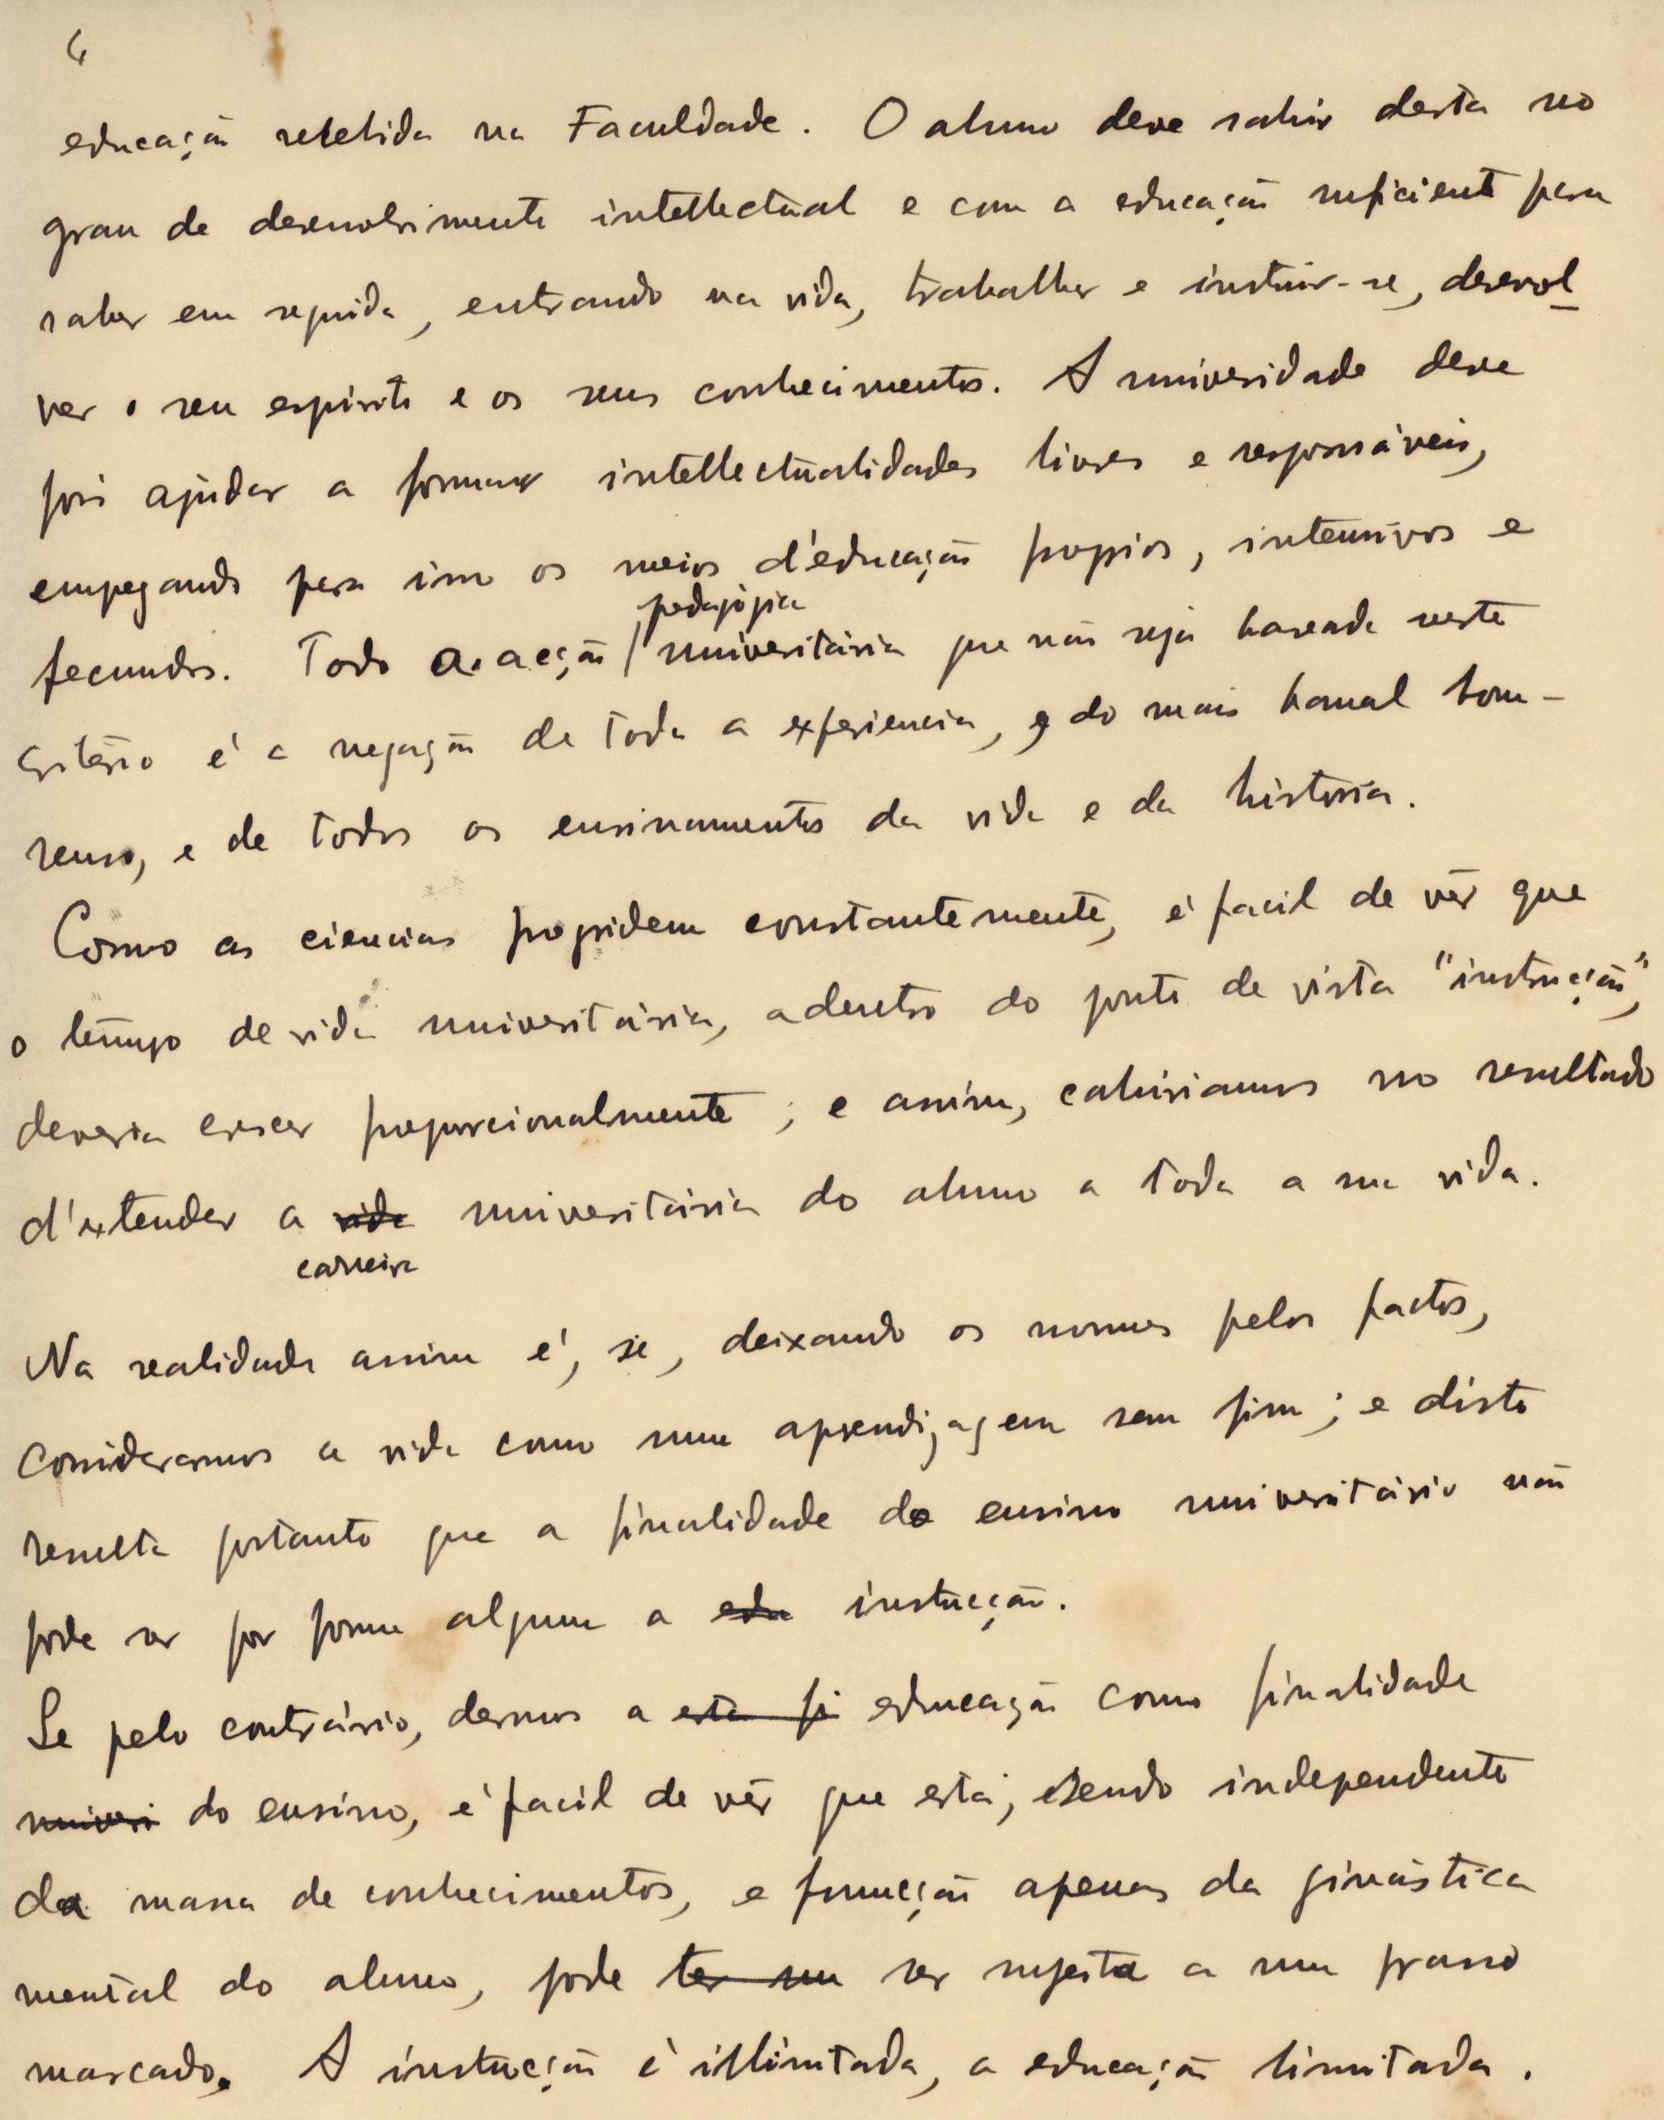 4
educação recebida na Faculdade. O alumno deve sahir desta no
grau de desenvolvimento intellectual e com a educação suficiente para
saber em seguida, entrando na vida, trabalhar e instruir-se, desenvol-
ver o seu espirito e os seus conhecimentos. A universidade deve
pois ajudar a formar intellectualidades livres e responsáveis,
empregando para isso os meios d'educação proprios, intensivos e
fecundos. Toda a acção / universitária que não seja baseada neste
pedagógica
critério é a negação de toda a experiencia, e do mais banal bom-
senso, e de todos os ensinamentos da vida e da história.
Como as ciencias progridem constantemente, é facil de vêr que
o tempo de vida universitária, adentro do ponto de vista "instrucção",
deveria crescer proporcionalmente; e assim, cahiriamos no resultado
d'extender a vida universitária do alumno a toda a sua vida.
carreira
Na realidade assim é, se, deixando os nomes pelos factos,
considerarmos a vida como uma aprendizagem sem fim; e disto
resulta portanto que a finalidade do ensino universitário não
pode ser por forma alguma a edu instrucção.
Se pelo contrário, dermos a esta fi educação como finalidade
universi do ensino, é facil de vêr que esta, sendo independente
da massa de conhecimentos, e funcção apenas da ginástica
mental do alumno, pode ter um ser sujeita a um praso
marcado. A instrucção é illimitada, a educação limitada.